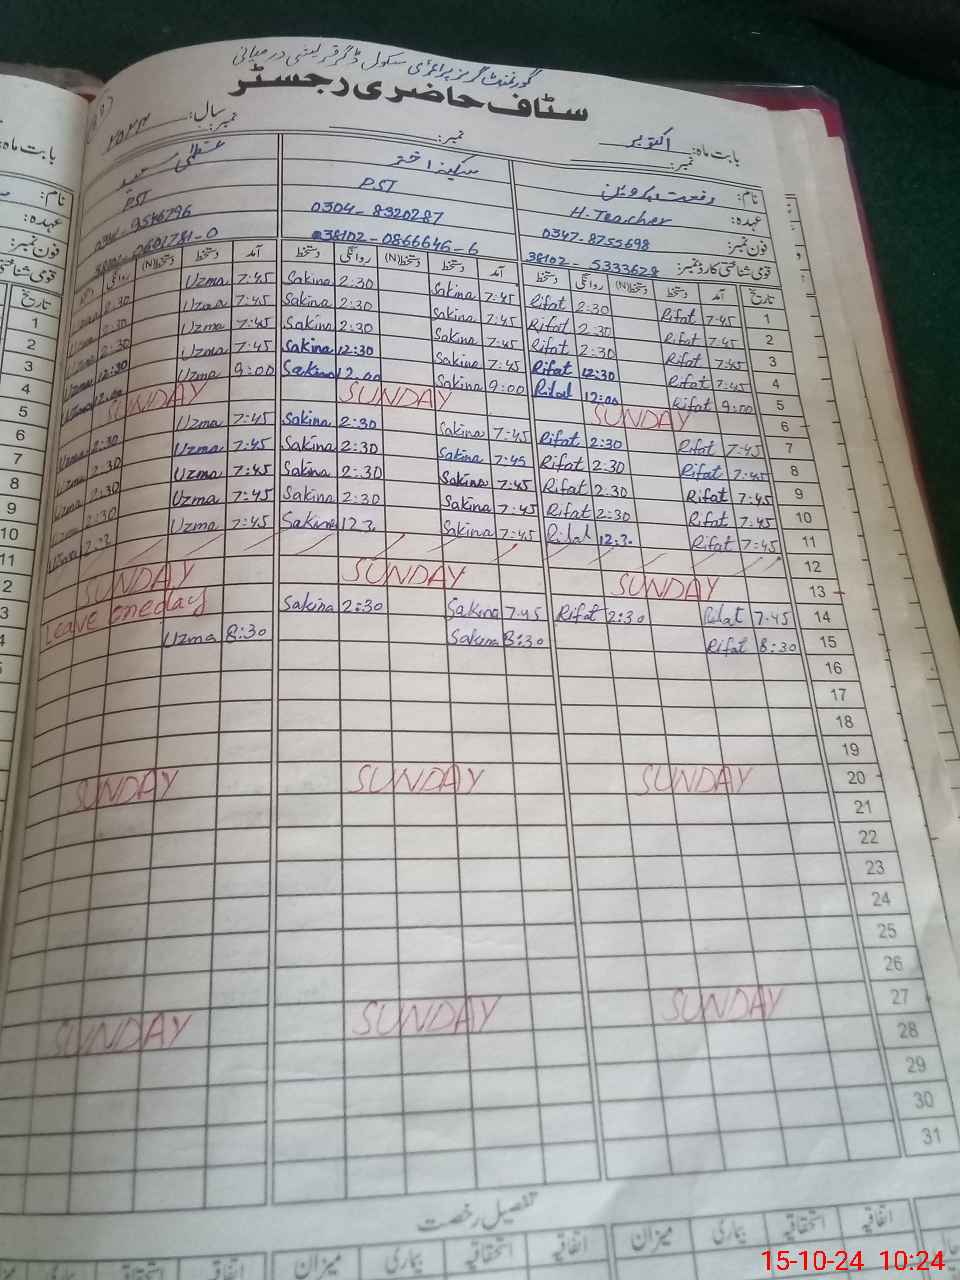 گورنمنٹ گرلز پرائمری سکول ڈگر قریشی درمیانی
سٹاف حاضری رجسٹر
بابت ماہ: اکتوبر نمبر: سال: ۲۰۲۴
نام: رفعت پروین سکینہ اختر عظمیٰ سعید
عہدہ: H. Teacher PST PST
فون نمبر: 0347-8755698 0304-8320287
قومی شناختی کارڈ نمبر: 38102-5333628 38102-0866646-6
تاریخ آمد دستخط دستخط(N) روانگی دستخط آمد دستخط دستخط(N) روانگی دستخط آمد دستخط دستخط(N) روانگی
1 7:45 Rifat 2:30 Rifat 7:45 Sakina 2:30 Sakina 7:45 Uzma 2:30
2 7:45 Rifat 2:30 Rifat 7:45 Sakina 2:30 Sakina 7:45 Uzma 2:30 Uzma
3 7:45 Rifat 2:30 Rifat 7:45 Sakina 2:30 Sakina 7:45 Uzma 2:30 Uzma
4 7:45 Rifat 12:30 Rifat 7:45 Sakina 12:30 Sakina 7:45 Uzma 12:30 Uzma
5 9:00 Rifat 12:00 Rifat 9:00 Sakina 12.00 Sakina 9:00 Uzma 12:00 Uzma
6 SUNDAY SUNDAY SUNDAY
7 7:45 Rifat 2:30 Rifat 7:45 Sakina 2:30 Sakina 7:45 Uzma 2:30 Uzma
8 7:45 Rifat 2:30 Rifat 7:45 Sakina 2:30 Sakina 7:45 Uzma 2:30 Uzma
9 7:45 Rifat 2:30 Rifat 7:45 Sakina 2:30 Sakina 7:45 Uzma 2:30 Uzma
10 7:45 Rifat 2:30 Rifat 7:45 Sakina 2:30 Sakina 7:45 Uzma 2:30 Uzma
11 7:45 Rifat 12:3. Rifat 7:45 Sakina 12 3. Sakina 7:45 Uzma
12
13 SUNDAY SUNDAY SUNDAY
14 7.45 Rifat 2:30 Rifat 7.45 Sakina 2:30 Sakina Leave oneday
15 8:30 Rifat 8:30 Sakina 8:30 Uzma
16
17
18
19
20 SUNDAY SUNDAY SUNDAY
21
22
23
24
25
26
27 SUNDAY SUNDAY SUNDAY
28
29
30
31
تفصیل رخصت
اتفاقیہ استحقاقیہ بیماری میزان اتفاقیہ استحقاقیہ بیماری میزان اتفاقیہ استحقاقیہ بیماری
15-10-24 10:24